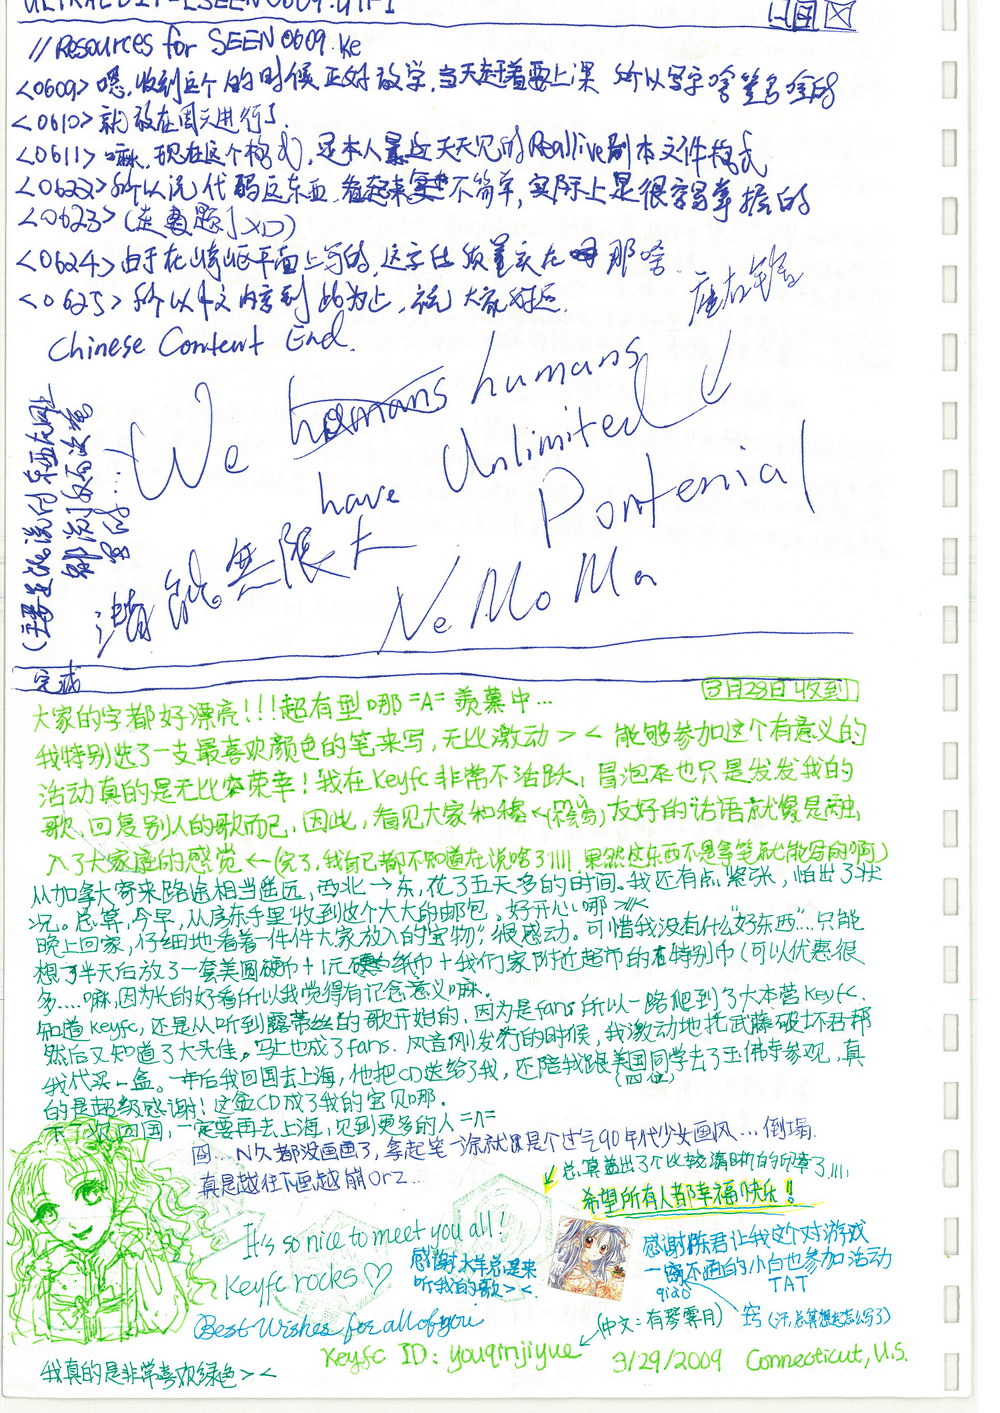 // Resources for SEEN0609.ke
<0609> 嗯，收到这个的时候正好放学，当天赶着要上课 所以写字啥签名啥的
<0610> 就放在周六进行了.
<0611> 嘛，现在这个格式，是本人最近天天见的Reallive剧本文件格式
<0622> 所以说代码这东西，看起来不简单，实际上是很容易掌握的
<0623> (走题了XD)
<0624> 由于在崎岖平面上写的，这字体质量实在 那啥.
<0625> 所以中文内容到此为止，祝大家好运.
Chinese Content End.
We humans humans
have Unlimited
Pontenial
潜能無限大
NeMoMa
完成
3月28日收到
大家的字都好漂亮!!!超有型哪=A= 羡慕中…
我特别选了一支最喜欢颜色的笔来写，无比激动> < 能够参加这个有意义的
活动真的是无比荣幸！我在Keyfc非常不活跃，冒泡也只是发发我的
歌，回复别人的歌而已，因此，看见大家和 友好的话语就像是融
入了大家庭的感觉 ←(完了，我自己都不知道在说啥了!!!! 果然这东西不是拿笔就能写的啊)
从加拿大寄来路途相当遥远，西北→东，花了五天多的时间。我还有点紧张，怕出了状
况。总算，今早，从房东手里收到这个大大的邮包。好开心哪>///<
晚上回家，仔细地看着一件件大家放入的"宝物"，很感动。可惜我没有什么"好东西"....只能
想了半天后放了一套美圆硬币+1元纸币+我们家附近超市的特别币(可以优惠很
多....嘛，因为长的好看所以我觉得有记念意义嘛.
知道Keyfc，还是从听到露蒂丝的歌开始的，因为是fans所以一路爬到了大本营Keyfc.
然后又知道了大头佳。马上也成了fans. 风音刚发行的时候，我激动地托武藤破坏君帮
我代买一盒。一年后我回国去上海，他把CD送给了我，还陪我跟美国同学去了玉佛寺参观，真
(四位)
的是超级感谢！这盒CD成了我的宝贝哪.
下次回国，一定要再去上海，见到更多的人=n=
囧...N久都没画画了，拿起笔一涂就是个过气90年代少女画风...倒塌.
真是越往下画越崩Orz...
总算盖出了个比较清晰的印章了!!!!
希望所有人都幸福快乐！
It's so nice to meet you all!
Keyfc rocks♡
感谢水羊总是来
听我的歌> <.
感谢陈君让我这个对游戏
一窍不通的小白也参加活动
qiao TAT
窍 (汗，总算想起怎么写了)
Best Wishes for all of you
(中文：有琴霁月)
Keyfc ID: youqinjiyue
3/29/2009 Connecticut, U.S.
我真的是非常喜欢绿色> <